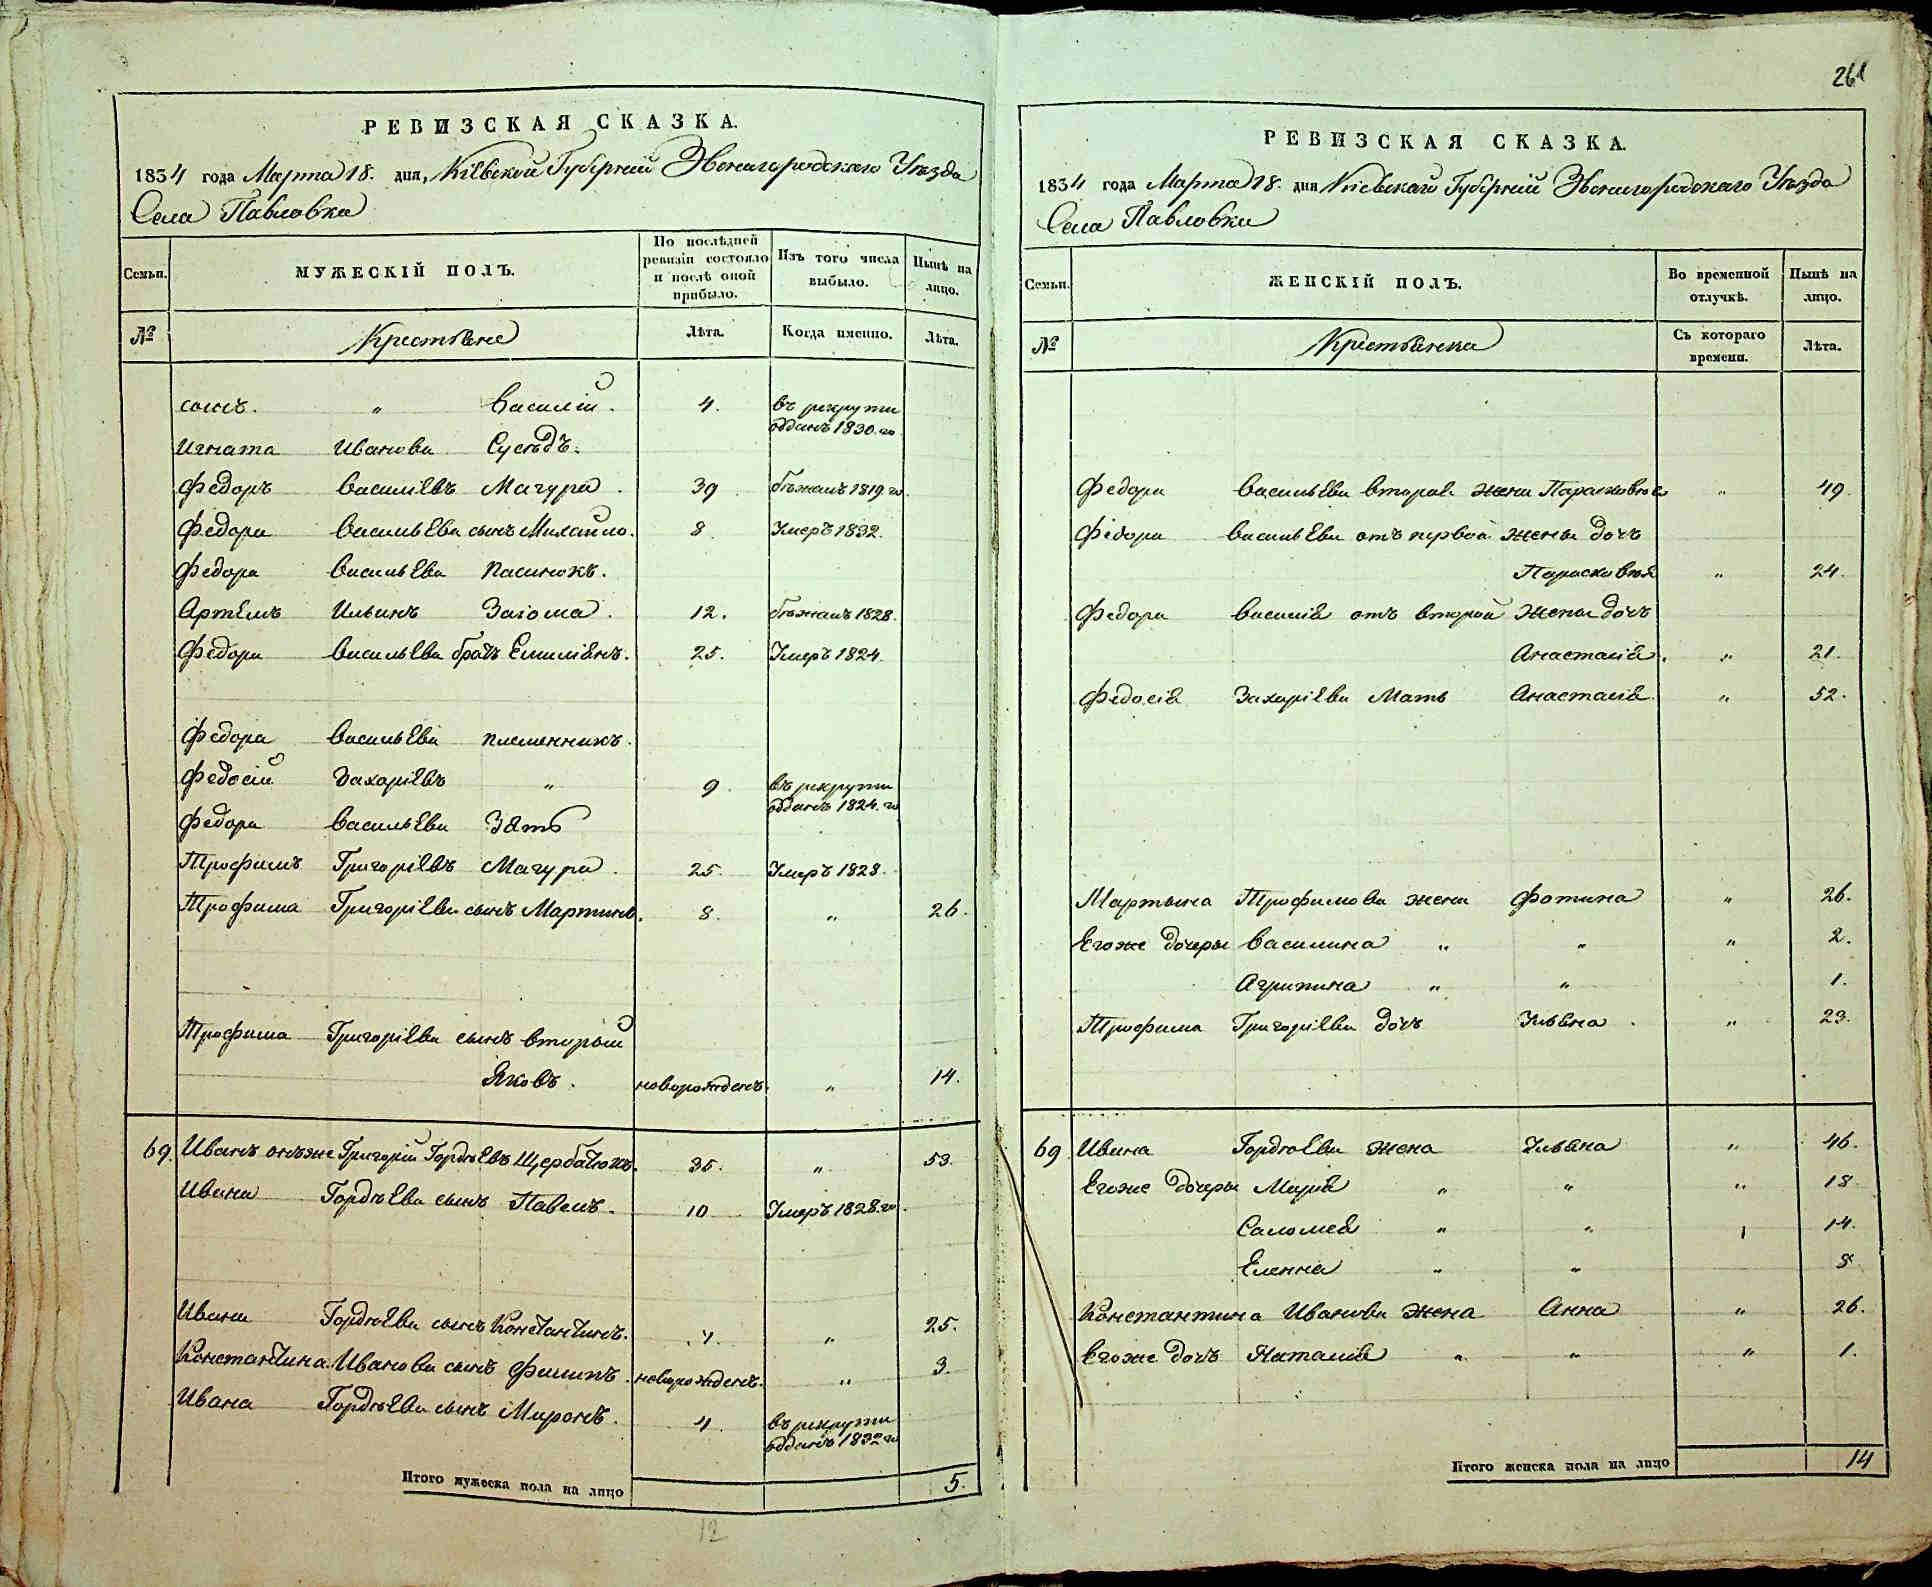 261
РЕВИЗСКАЯ СКАЗКА.
1834 года Марта 18. дня, Кіевской Губерніи Звенигородскаго Уѣзда
Села Павловка
Семьи.
МУЖЕСКІЙ ПОЛЪ.
По послѣдней ревизіи состояло и послѣ оной прибыло.
Изъ того числа выбыло.
Нынѣ на лицо.
№
Крестьяне
Лѣта.
Когда именно.
Лѣта.
сынъ. " Василій. 4. въ рекруты
отданъ 1830. го
Игната Иванова Сусѣдъ.
Федоръ Василіевъ Магура. 39 бѣжалъ 1819. го
Федора Васильева сынъ Михайло. 8 Умеръ 1832.
Федора Васильева пасинокъ.
Артемъ Ильинъ 12. бѣжалъ 1828.
Федора Васильева братъ Емиліянъ. 25. Умеръ 1824.
Федора Васильева племенникъ.
Федосій Захаріевъ " 9 въ рекруты
отданъ 1824. го
Федора Васильева Зять
Трофимъ Григоріевъ Магура. 25. Умеръ 1828.
Трофима Григоріева сынъ Мартинъ. 8. " 26.
Трофима Григоріева сынъ вторый
Яковъ. новорожденъ. " 14.
69. Иванъ онъже Григорій Гордѣевъ Щербатюкъ. 35. " 53.
Ивана Гордѣева сынъ Павелъ. 10 Умеръ 1828. го
Ивана Гордѣева сынъ Константинъ. 4. " 25.
Константина Иванова сынъ Филипъ. новорожденъ. " 3.
Ивана Гордѣева сынъ Миронъ. 4 въ рекруты
отданъ 1832 го
Итого мужеска пола на лицо 5.
12
РЕВИЗСКАЯ СКАЗКА.
1834 года Марта 18. дня Кіевскаго Губерніи Звенигородскаго Уѣзда
Села Павловки
Семьи.
ЖЕНСКІЙ ПОЛЪ.
Во временной отлучкѣ.
Нынѣ на лицо.
№
Крестьянки
Съ котораго времени.
Лѣта.
Федора Васильева вторая жена Парасковія " 49.
Федора Васильева отъ первой жены дочь
Парасковія " 24.
Федора Василія отъ второй жены дочь
Анастасія. " 21.
Федосія Захаріева Мать Анастасія " 52.
Мартына Трофимова жена Фотина " 26.
Егоже дочеры Василина " " " 2.
Агрипина " " 1.
Трофима Григоріева дочь Ульяна. " 23.
69 Ивана Гордѣева жена Ульяна " 46.
Егоже дочеры Марія " " " 18
Саломея " " 14.
Еленна " " 8
Константина Иванова жена Анна " 26.
Егоже дочь Наталія " " " 1.
Итого женска пола на лицо 14